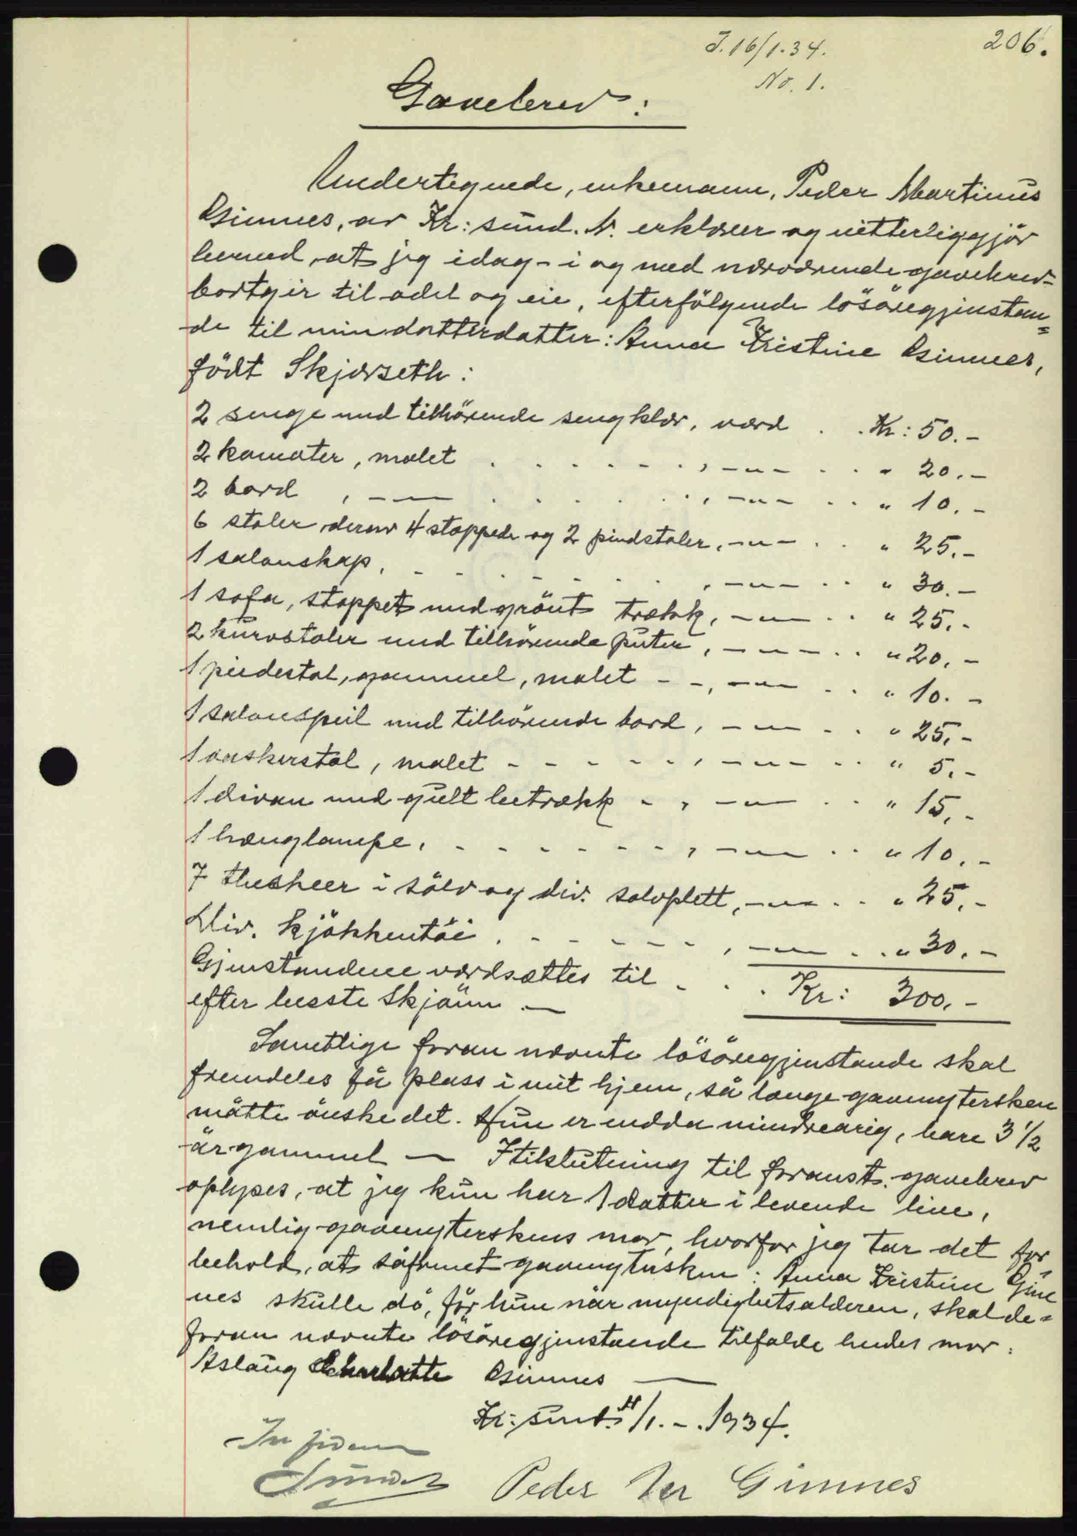 J. 16/1-34.
206.
No. 1.
Gavebrev:
Undertegnede, enkemann, Peder Martinus
Gimnes, av Kr: sund. N. erklærer og vitterliggjör
herved, at jeg idag - i og med nærværende gavebrev-
bortgir til odel og eie, efterfölgende lösöregjenstan=
de til min datterdatter: Anna Kristine Gimnes,
födt Skjærseth:
2 senge med tilhörende sengklær, værd . . Kr: 50.-
2 kamoter, malet . . . . . . , -"- . . " 20.-
2 bord , -"- . . . . . , -"- . . " 10.-
6 stoler derav 4 stoppede og 2 pindstoler, -"- . . " 25.-
1 salonskap, . . . . . . . , -"- . . " 30.-
1 sofa, stoppet med grönt trækk, -"- . . " 25.-
2 kurvstoler med tilhörende puter, -"- . . " 20.-
1 piedestal, gammel, malet - -, -"- . . " 10.-
1 salonspeil med tilhörende bord, -"- . . " 25.-
1 vaskerstol, malet - - - - - , -"- . . " 5.-
1 divan med gult betrækk - , -"- . . " 15.-
1 hænglampe, - - - - - - - , -"- . . " 10.-
7 theskeer i sölv og div. sølvplett, -"- . . " 25.-
Div. kjökkentöi . - - - - - , -"- . . " 30.-
Gjenstandene værdsættes til . . . Kr: 300.-
efter beste skjönn —
Samtlige foran nævnte lösöregjenstande skal
fremdeles få plass i mit hjem, så længe gavenytersken
måtte önske det. Hun er endda mindreårig, bare 3 1/2
år gammel — I tilslutning til foranst. gavebrev
oplyses, at jeg kun har 1 datter i levende live,
nemlig gavenyterskens mor, hvorfor jeg tar det for=
behold, at såfremt gavenytersken: Anna Kristine Gim
nes skulle dö, för hun når myndighetsalderen, skal de=
foran nævnte lösöregjenstande tilfalde hendes mor:
Aslaug Charlotte Gimnes —
Kr: sund. 4/1. - . 1934.
In fidem
Peder Mr Gimnes